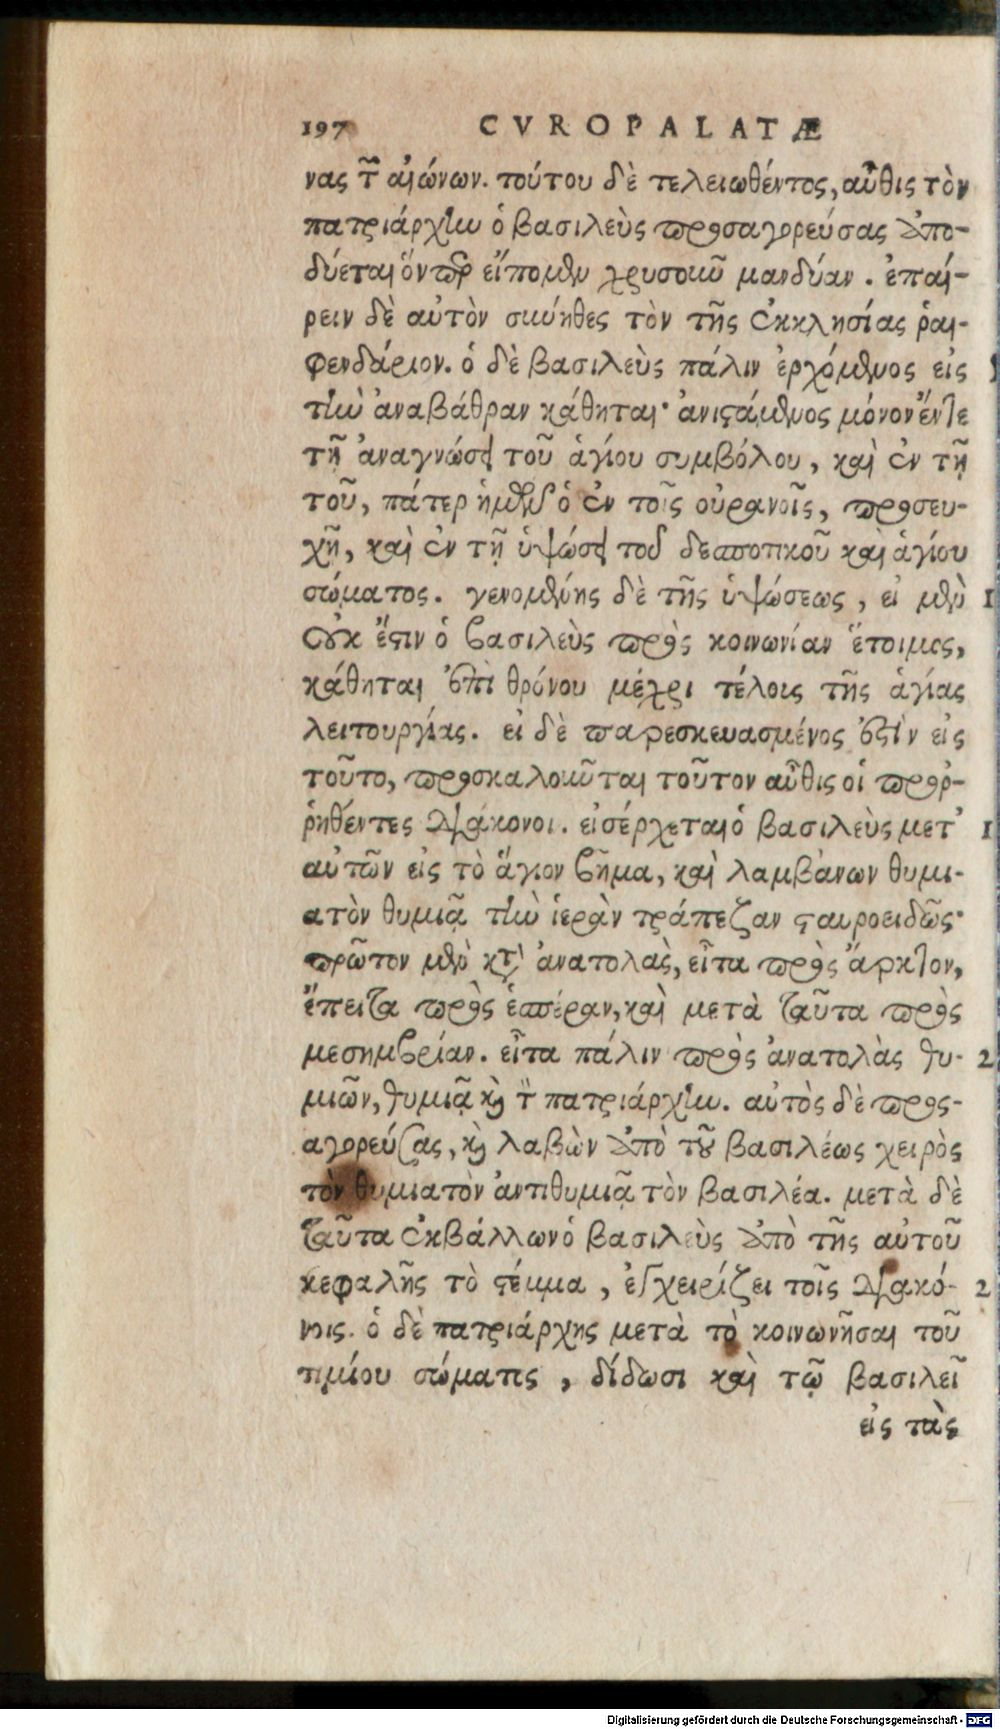 197 CVROPALATÆ
νας τῶν αἰώνων. τούτου δὲ τελειωθέντος, αὖθις τὸν
πατριάρχην ὁ βασιλεὺς προσαγορεύσας ἀπο-
δύεται ὅνπερ εἴπομεν χρυσοῦν μανδύαν. ἐπαί-
ρειν δὲ αὐτὸν σύνηθες τὸν τῆς ἐκκλησίας ῥαι-
φενδάριον. ὁ δὲ βασιλεὺς πάλιν ἐρχόμενος εἰς
τὴν ἀναβάθραν κάθηται· ἀνιστάμενος μόνον ἔντε
τῇ ἀναγνώσει τοῦ ἁγίου συμβόλου, καὶ ἐν τῇ
τοῦ, πάτερ ἡμῶν ὁ ἐν τοῖς οὐρανοῖς, προσευ-
χῇ, καὶ ἐν τῇ ὑψώσει τοῦ δεσποτικοῦ καὶ ἁγίου
σώματος. γενομένης δὲ τῆς ὑψώσεως, εἰ μὲν 1
οὐκ ἔστιν ὁ βασιλεὺς πρὸς κοινωνίαν ἕτοιμος,
κάθηται ἐπὶ θρόνου μέχρι τέλους τῆς ἁγίας
λειτουργίας. εἰ δὲ παρεσκευασμένος ἐστὶν εἰς
τοῦτο, προσκαλοῦνται τοῦτον αὖθις οἱ προῤ-
ῥηθέντες διάκονοι. εἰσέρχεται ὁ βασιλεὺς μετ' 1
αὐτῶν εἰς τὸ ἅγιον βῆμα, καὶ λαμβάνων θυμι-
ατὸν θυμιᾷ τὴν ἱερὰν τράπεζαν σταυροειδῶς·
πρῶτον μὲν κατ' ἀνατολὰς, εἶτα πρὸς ἄρκτον,
ἔπειτα πρὸς ἑσπέραν, καὶ μετὰ ταῦτα πρὸς
μεσημβρίαν. εἶτα πάλιν πρὸς ἀνατολὰς θυ- 2
μιῶν, θυμιᾷ καὶ τὸν πατριάρχην. αὐτὸς δὲ προς-
αγορεύσας, καὶ λαβὼν ἀπὸ τοῦ βασιλέως χειρὸς
τὸν θυμιατὸν ἀντιθυμιᾷ τὸν βασιλέα. μετὰ δὲ
ταῦτα ἐκβάλλων ὁ βασιλεὺς ἀπὸ τῆς αὐτοῦ
κεφαλῆς τὸ στέμμα, ἐγχειρίζει τοῖς διακό- 2
νοις. ὁ δὲ πατριάρχης μετὰ τὸ κοινωνῆσαι τοῦ
τιμίου σώματος, δίδωσι καὶ τῷ βασιλεῖ
εἰς τὰς
Digitalisierung gefördert durch die Deutsche Forschungsgemeinschaft - DFG